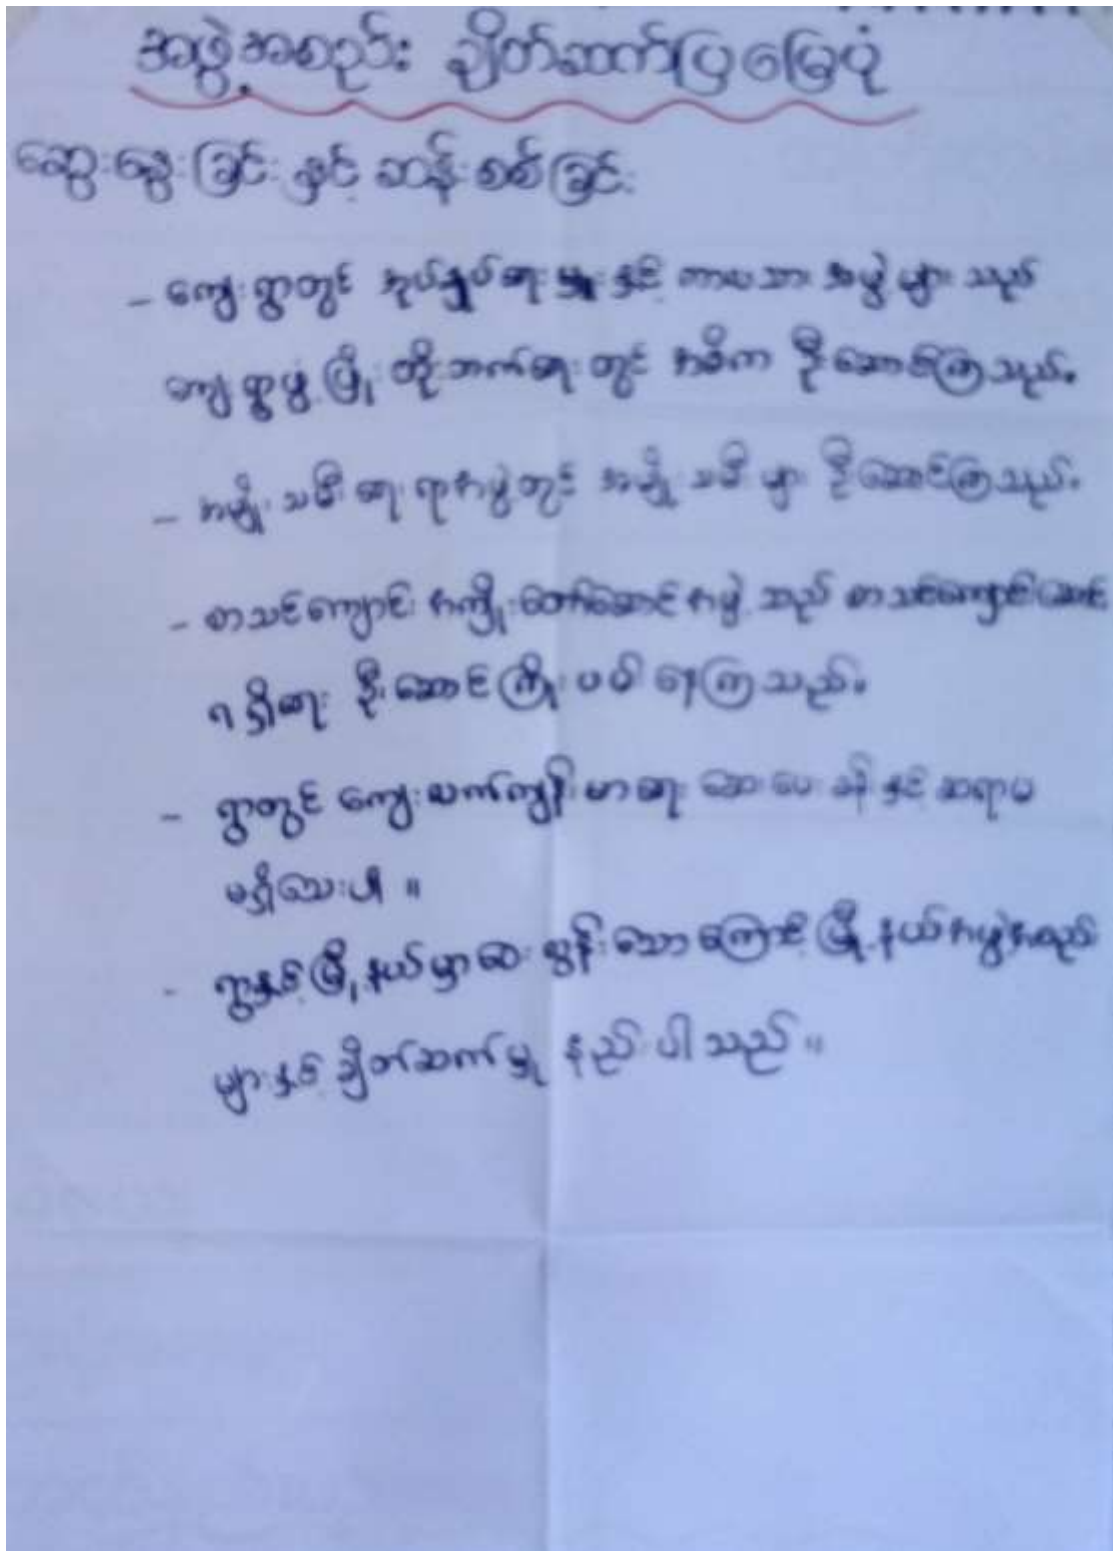 အဖွဲ့အစည်း ချိတ်ဆက်ပြမြေပုံ
ဆွေးနွေးခြင်းနှင့် ဆန်းစစ်ခြင်း
- ကျေးရွာတွင် အုပ်ချုပ်ရေးမှူးနှင့် ကာယသားအဖွဲ့များသည်
ကျေးရွာဖွံ့ဖြိုးတိုးတက်ရေးတွင် အဓိက ဦးဆောင်ကြသည်။
- အမျိုးသမီးရေးရာအဖွဲ့တွင် အမျိုးသမီးများ ဦးဆောင်ကြသည်။
- စာသင်ကျောင်း အကျိုးတော်ဆောင်အဖွဲ့သည် စာသင်ကျောင်းဆောင်
ရရှိရေး ဦးဆောင်ကြိုးပမ်းနေကြသည်။
- ရွာတွင် ကျေးလက်ကျန်းမာရေး ဆေးပေးခန်းနှင့် ဆရာမ
မရှိသေးပါ။
- ရွာနှင့်မြို့နယ်မှာဝေးကွန်းသောကြောင့် မြို့နယ်အဖွဲ့အစည်း
များနှင့် ချိတ်ဆက်မှု နည်းပါသည်။